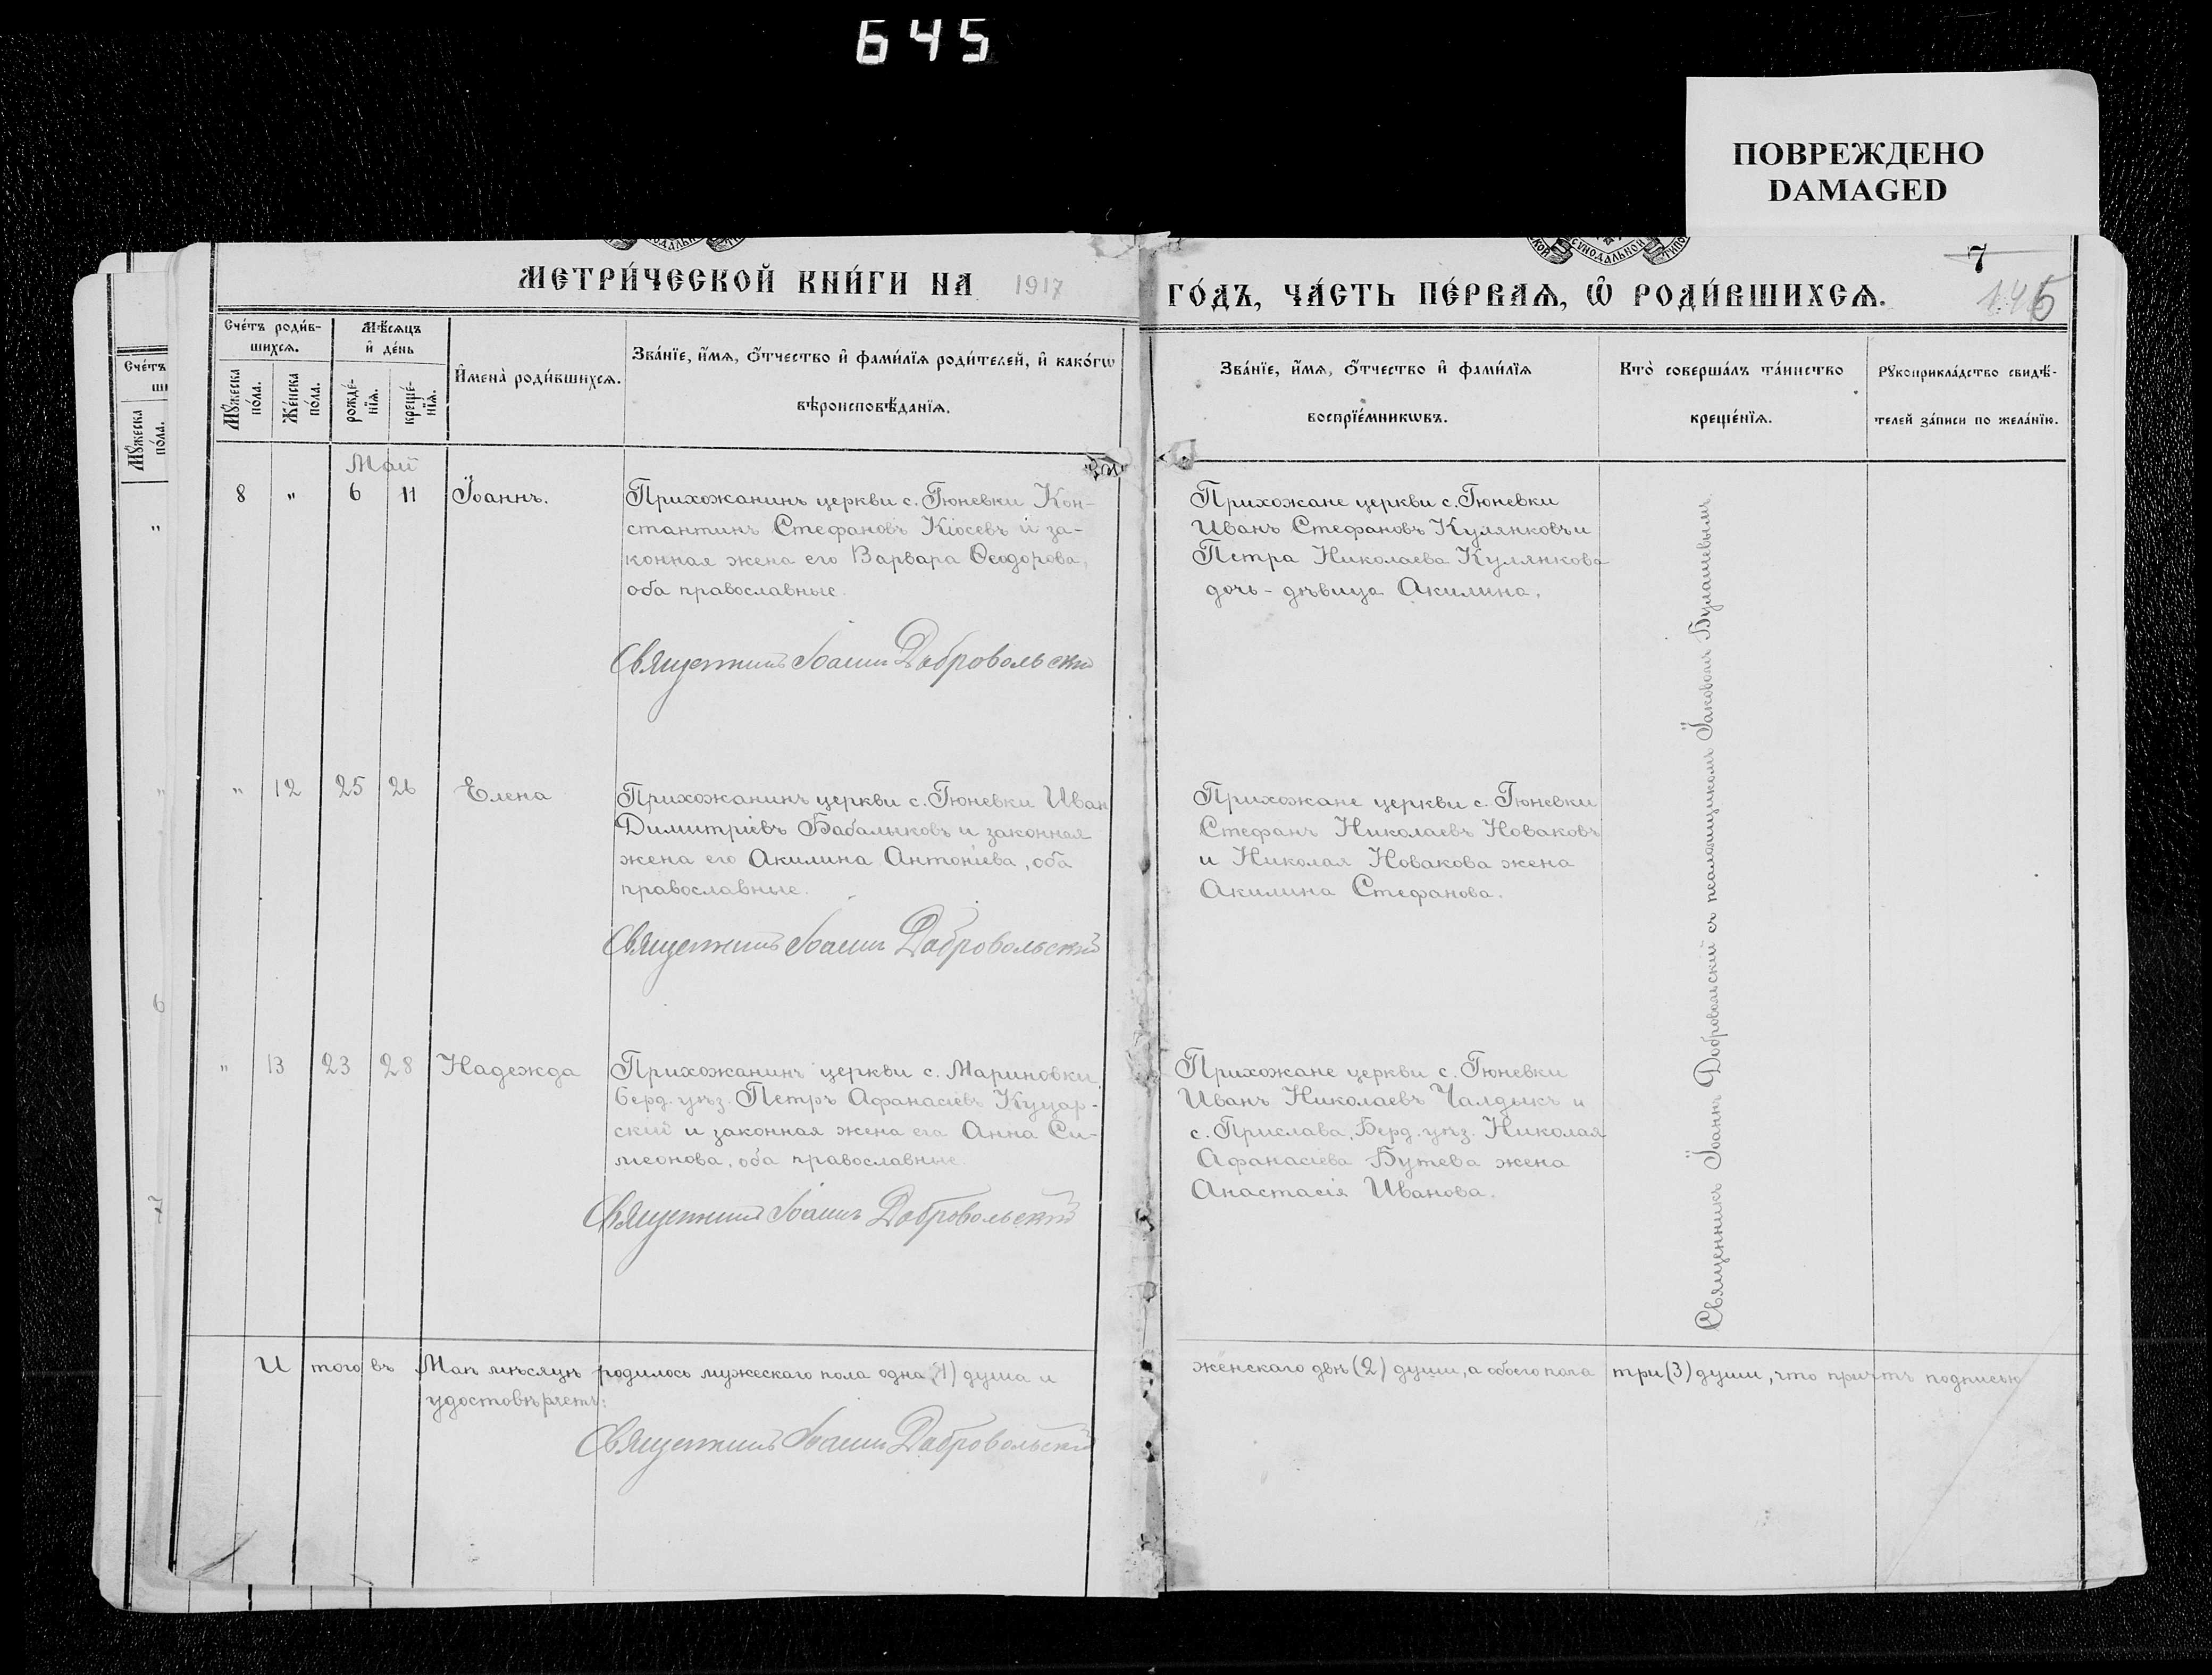 645
ПОВРЕЖДЕНО
DAMAGED
МЕТРИ́ЧЕСКОЙ КНИ́ГИ НА 1917
ГО́ДЪ, ЧА́СТЬ ПЕ́РВАѦ, Ѽ РОДИ́ВШИХСѦ.
7
145
Сче́тъ роди́в-
шихсѧ.
Мѣ́сѧцъ
и҆ де́нь
Мꙋ́жеска
по́ла.
Же́нска
по́ла.
рожде́-
нїѧ.
креще́-
нїѧ.
И҆мена̀ роди́вшихсѧ.
Зва́нїе, и҆́мѧ, ѻ҆́тчество и҆ фами́лїѧ роди́телей, и҆ како́гѡ
вѣроисповѣ́данїѧ.
Зва́нїе, и҆́мѧ, ѻ҆́тчество и҆ фами́лїѧ
воспрїе́мникѡвъ.
Кто̀ соверша́лъ та́инство
креще́нїѧ.
Рꙋкоприкла́дство свидѣ́-
телей за́писи по жела́нїю.
Май
8 " 6 11 Іоаннъ.
Прихожанинъ церкви с. Гюневки Кон-
стантинъ Стефановъ Кіосевъ и за-
конная жена его Варвара Ѳеодорова,
оба православные.
Священникъ Іоаннъ Добровольскій
Прихожане церкви с. Гюневки
Иванъ Стефановъ Кулянковъ и
Петра Николаева Кулянкова
дочь - дѣвица Акилина.
" 12 25 26 Елена
Прихожанинъ церкви с. Гюневки Иван
Димитріевъ Бабалыковъ и законная
жена его Акилина Антоніева, оба
православные.
Священникъ Іоаннъ Добровольскій
Прихожане церкви с. Гюневки
Стефанъ Николаевъ Новаковъ
и Николая Новакова жена
Акилина Стефанова.
" 13 23 28 Надежда
Прихожанинъ церкви с. Мариновки
Берд. уѣз. Петръ Афанасіевъ Куцар-
скій и законная жена его Анна Си-
меонова, оба православные.
Священникъ Іоаннъ Добровольскій
Прихожане церкви с. Гюневки
Иванъ Николаевъ Чалдыкъ и
с. Прислава, Берд. уѣз. Николая
Афанасіева Бутева жена
Анастасія Иванова.
Священникъ Іоаннъ Добровольскій съ псаломщикомъ Іаковомъ Булашевымъ
И того въ Маѣ мѣсяцѣ родилось мужескаго пола одна (1) душа и
женскаго двѣ (2) души, а обоего пола три (3) души, что причтъ подписью
удостовѣряетъ:
Священникъ Іоаннъ Добровольскій